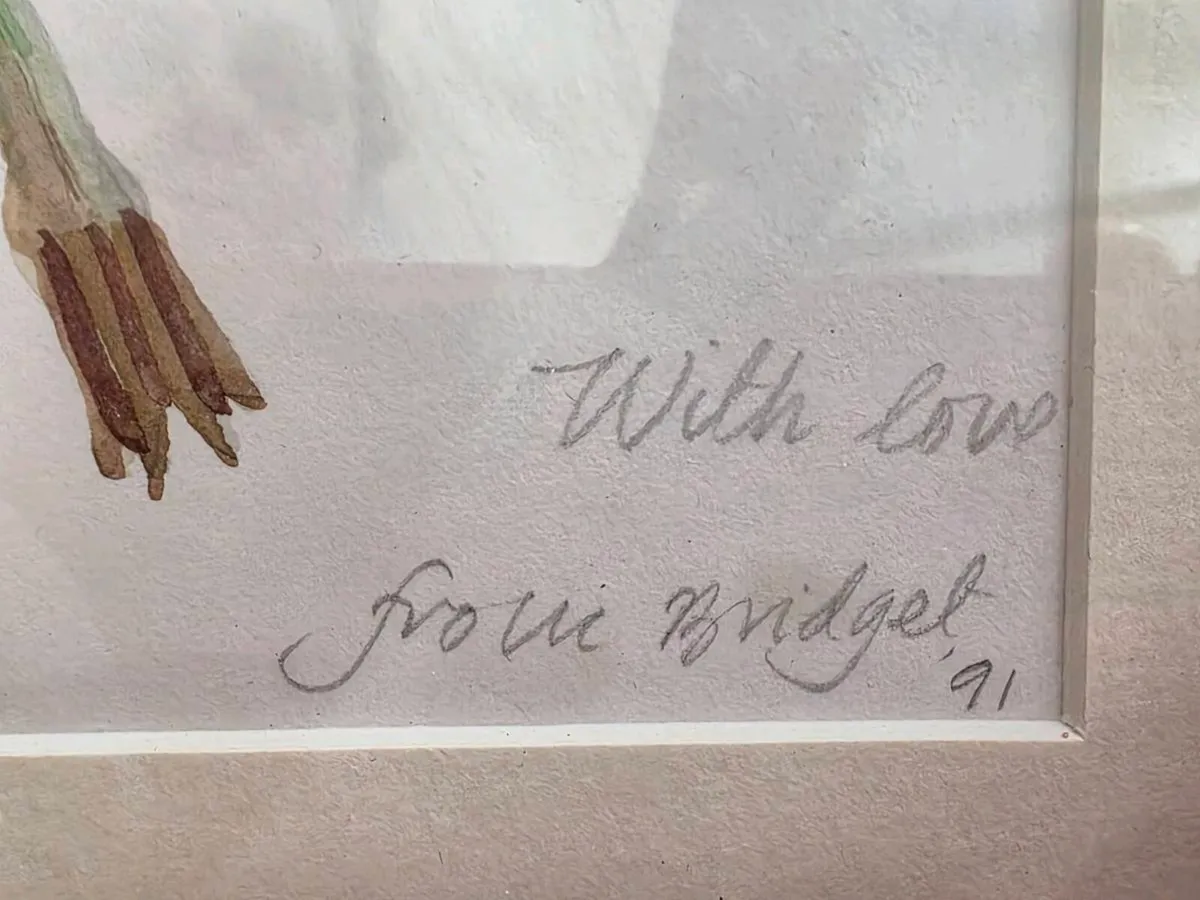 With love
from Bridget
'91